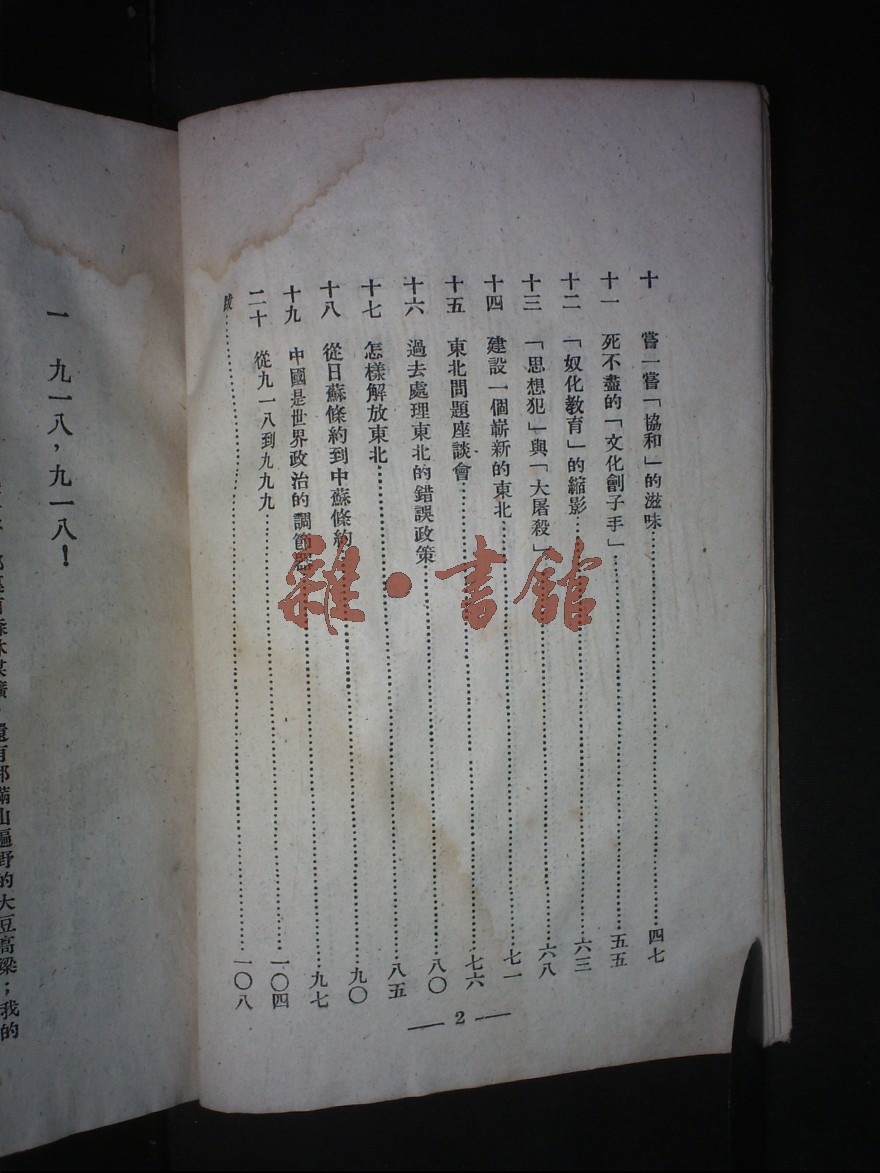 十 嘗一嘗「協和」的滋味……四七
十一 死不盡的「文化劊子手」……五五
十二 「奴化教育」的縮影……六三
十三 「思想犯」與「大屠殺」……六八
十四 建設一個嶄新的東北……七一
十五 東北問題座談會……七六
十六 過去處理東北的錯誤政策……八〇
十七 怎樣解放東北……八五
十八 從日蘇條約到中蘇條約……九〇
十九 中國是世界政治的調節器……九七
二十 從九一八到九九九……一〇四
跋……一〇八
— 2 —
一 九一八，九一八！
還有那滿山遍野的大豆高粱；我的
雜·書館